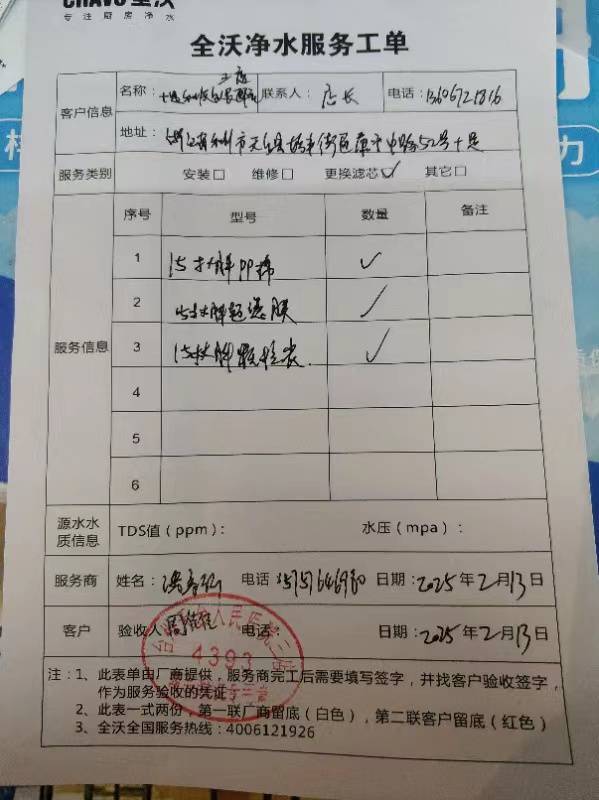 CHAVO全沃
专注厨房净水
全沃净水服务工单
客户信息
名称：
联系人：店长
电话：13606721816
地址：浙江省台州市天台县 街道 中路52号十足
服务类别
安装□ 维修□ 更换滤芯☑ 其它□
服务信息
序号 型号 数量 备注
1 15寸快接PP棉 ✓
2 15寸快接超滤膜 ✓
3 15寸快接颗粒炭 ✓
4
5
6
源水水质信息
TDS值（ppm）： 水压（mpa）：
服务商 姓名： 电话 日期：2025年2月13日
客户 验收人 周 电话 日期：2025年2月13日
人民医院三店
4393
注：1、此表单由厂商提供，服务商完工后需要填写签字，并找客户验收签字，
作为服务验收的凭证
2、此表一式两份，第一联厂商留底（白色），第二联客户留底（红色）
3、全沃全国服务热线：4006121926
力